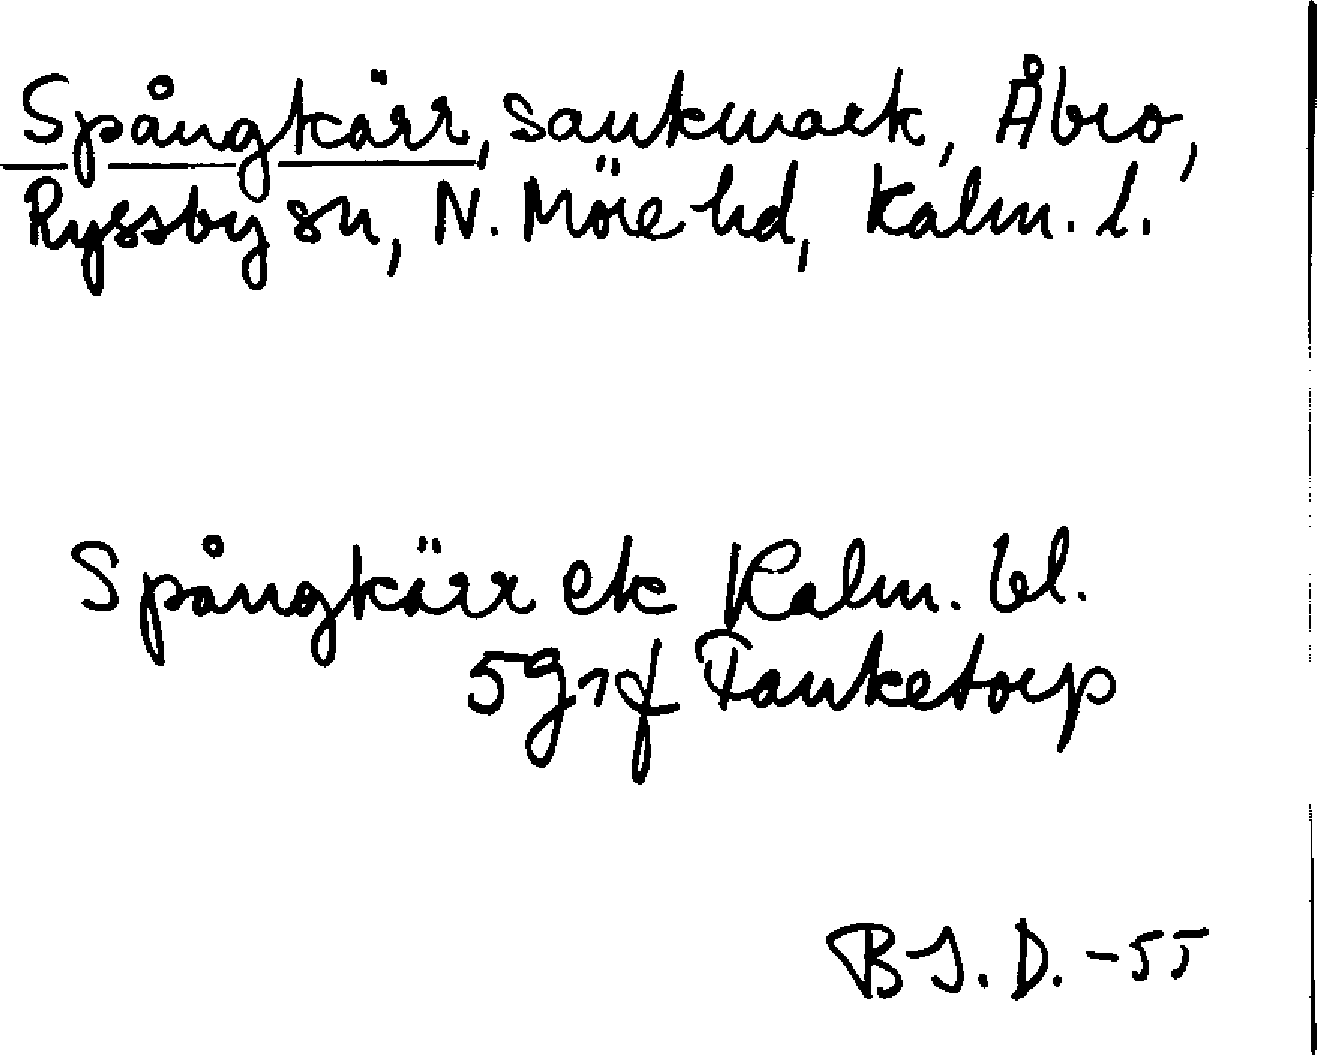 Spångkärr, sankmark, Åbro,
Ryssby sn, N. Möre hd, Kalm. l.
Spångkärr ek Kalm. bl.
5g1f Tanketorp
BJ. D. -55